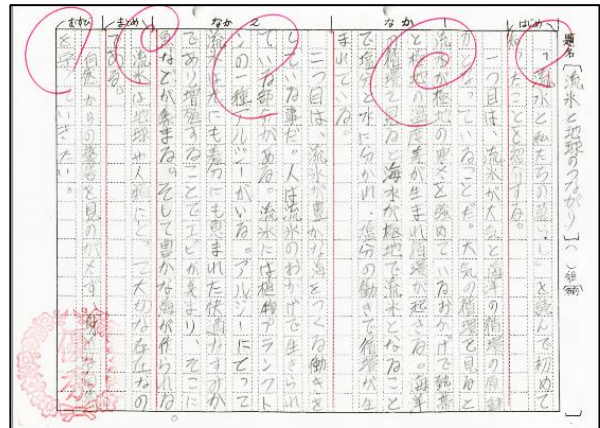 はじめ
なか1
なか2
まとめ
むすび
題名
「流氷と地球のつながり」
「流氷と私たちの
」を読んで初めて
知ったことを
する。
一つ目は、流氷が大気と海洋の循環の原動
力となっていることだ。大気の循環を見ると
流氷が極地の寒さを強めているおかげで熱帯
と極地の
差が生まれ循環が起きる。海洋
の循環を見ると、海水が極地で流氷となること
で塩分と水に分かれ、塩分の働きで循環が生
まれている。
二つ目は、流氷が豊かな海をつくる働きを
している事だ。人は流氷のおかげで生きられ
ている部分がある。流氷には植物プランクト
ンの一種アルジーがいる。アルジーにとって
流氷は
にも養分にも恵まれた快適なすみか
であり増殖することでエビが集まり、そこに
魚などが集まる。そして豊かな海が作られる。
流氷は地球や人類にとって大切な存在なの
である。
自然からの警告を見のがさず、
を守っていきたい。